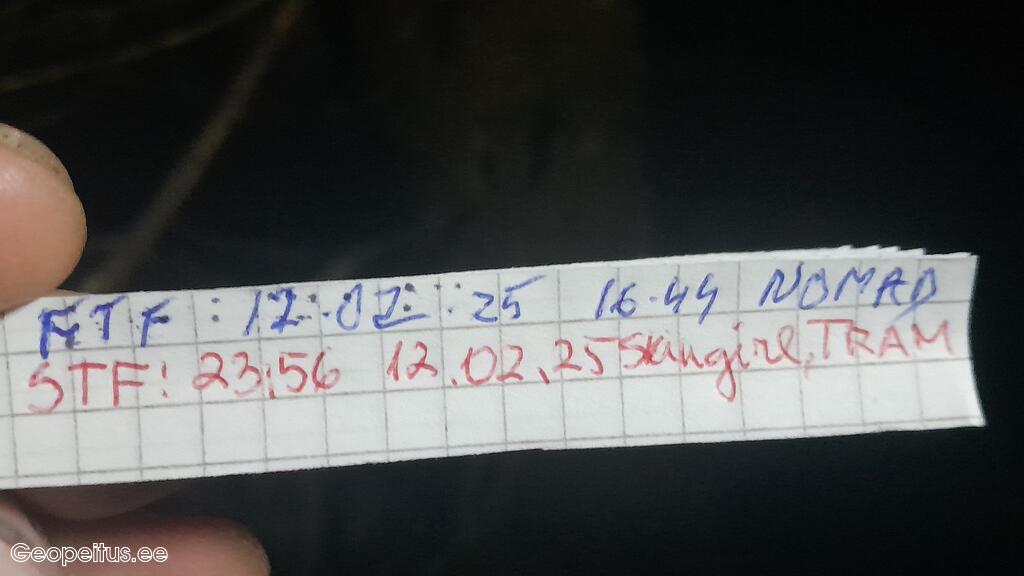 FTF: 12.02.25 16.44 NOMAD
STF: 23:56 12.02.25 Sangire, TRAM
Geopeitus.ee